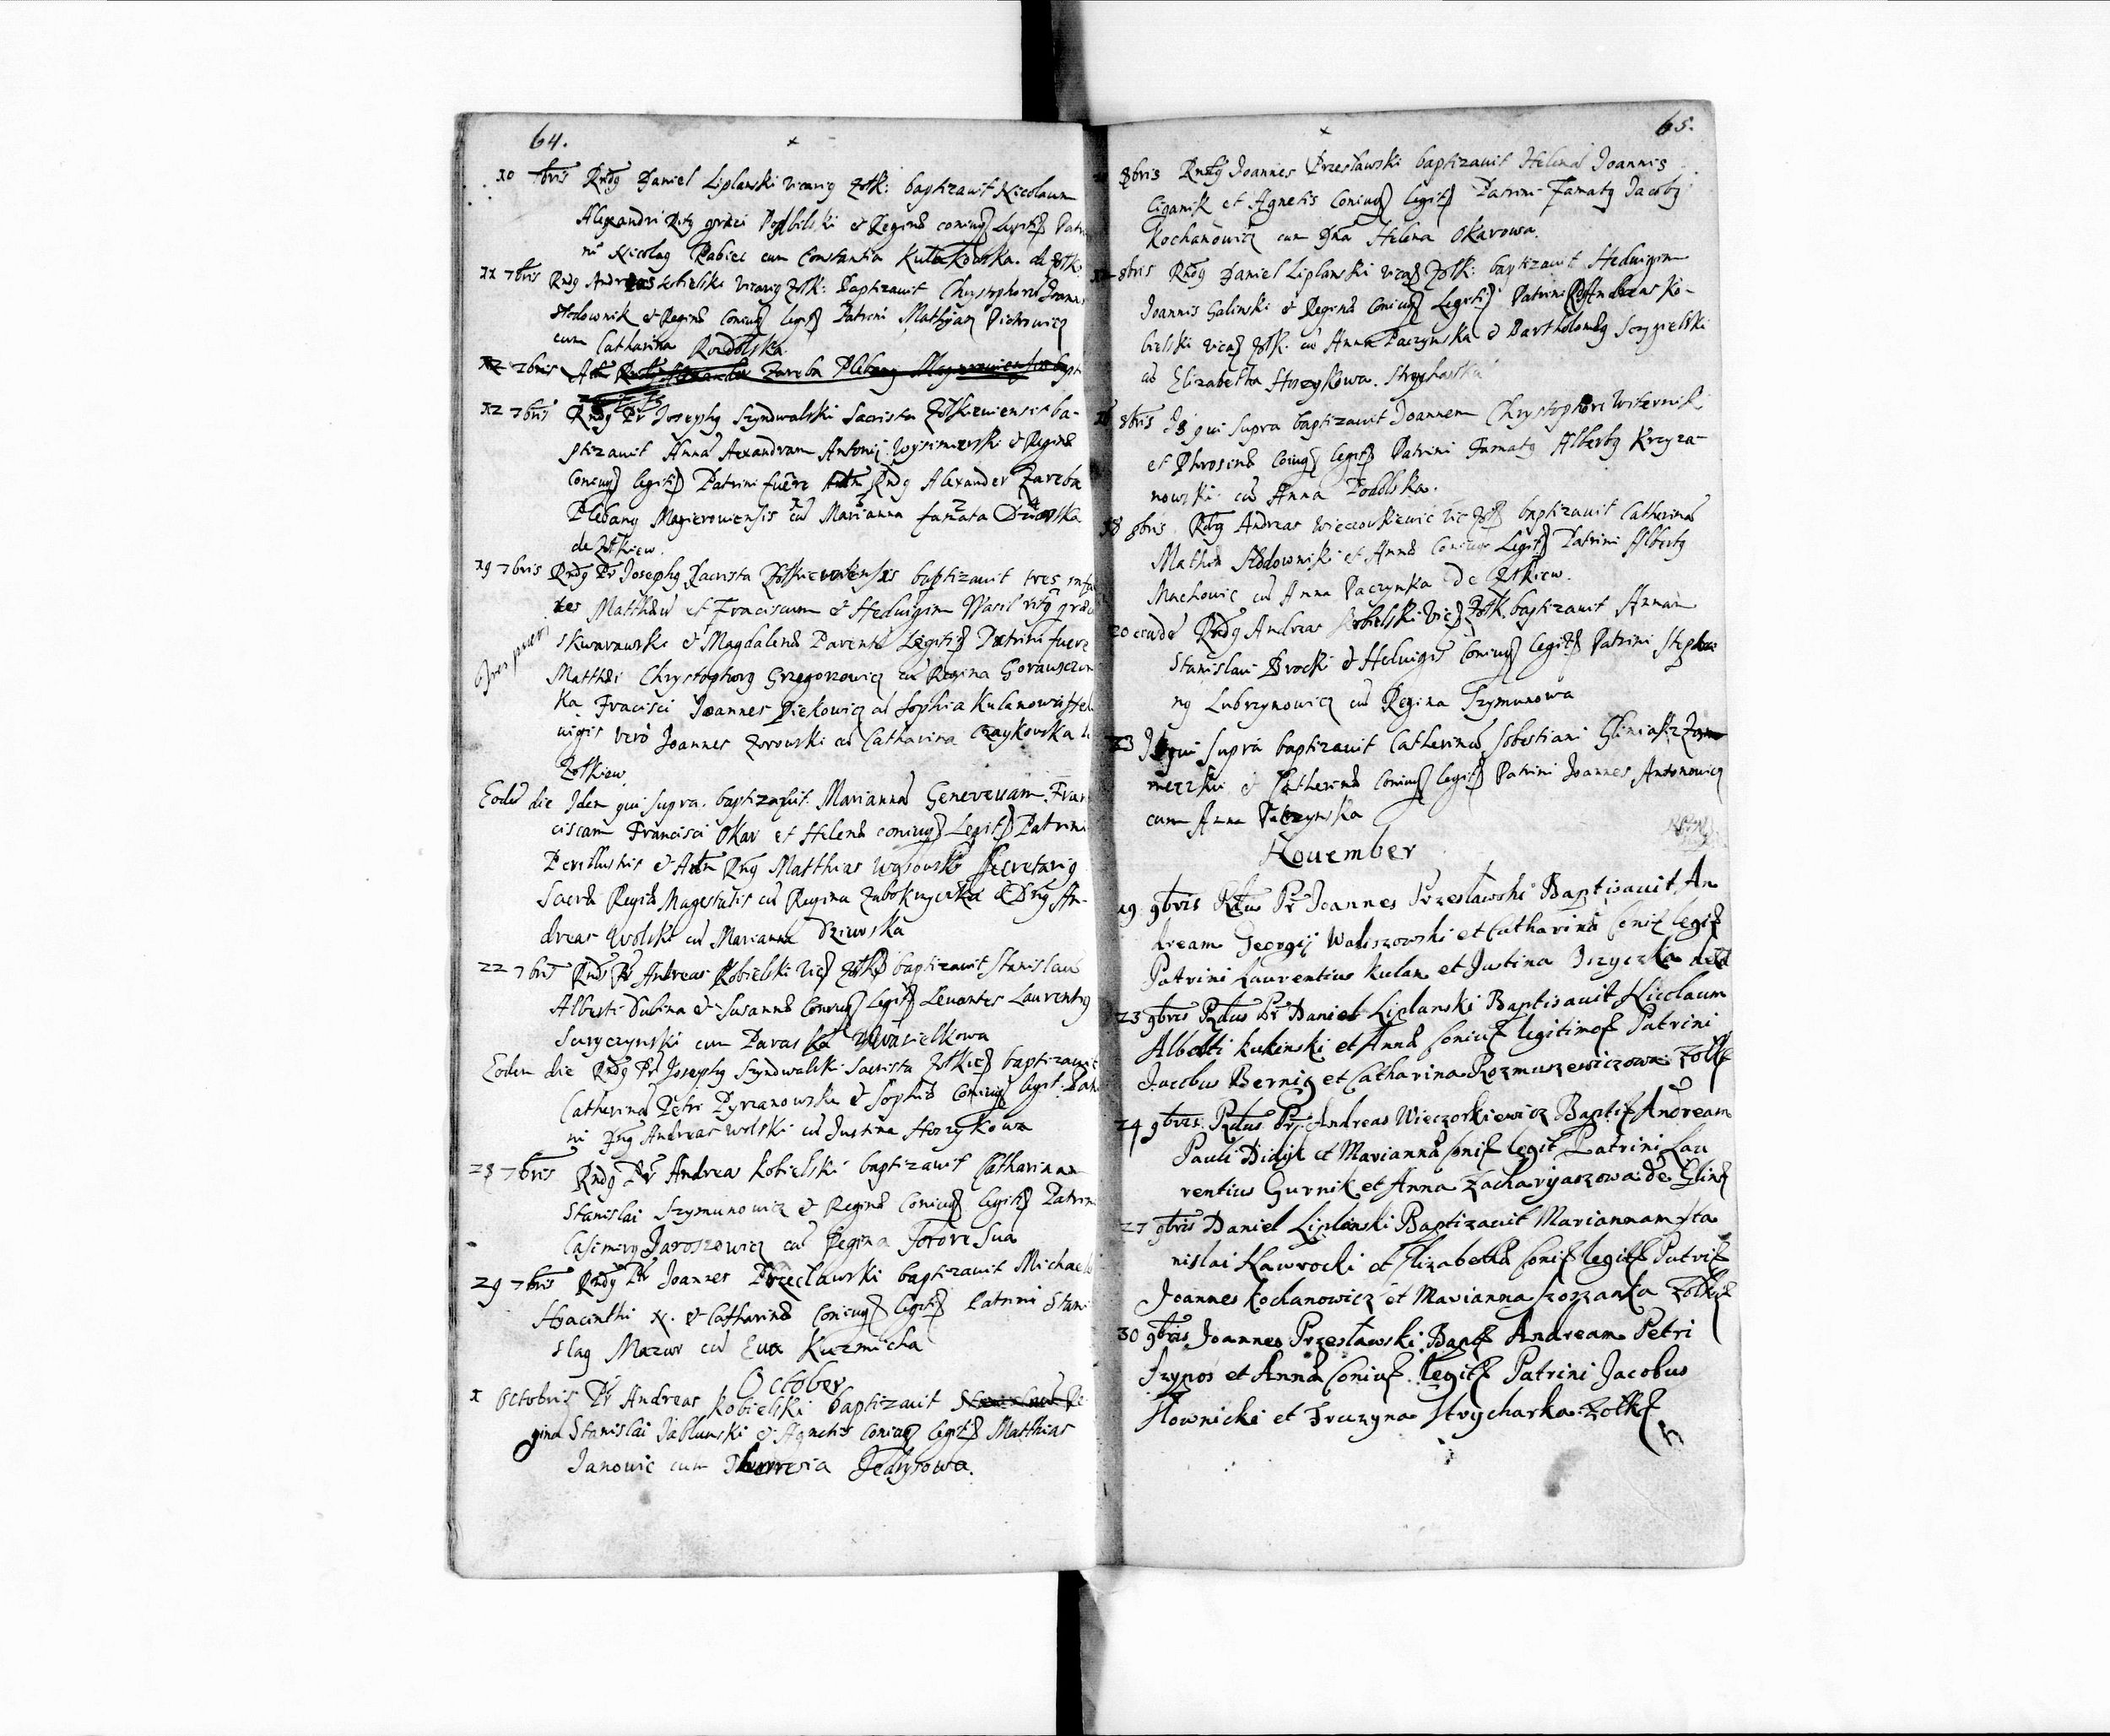 64.
10 7bris Rndg Daniel Liplanski vicarig Zołk: baptizavit Nicolaum
Alexandri Ritg græci et Reginæ coniug legitis Patri
ni Nicolag Babiec cum Constantia Kulakowska. de Zołk.
11 7bris Rndg Andreas Kobielski vicarig Zołk: Baptizavit Chrystophorũ Joannis
Słodownik et Reginæ Coniug legit Patrini Mathyas Pietrowicz
cum Catharina
12 7bris Adm Rndg Alexander Zaręba Plebang Magieroviensis bapt
12 7bris Rndg Pr Josephg Szyndwalski Sacrista Zołkieuiensis ba-
ptizauit Annã Alexandram Antonij Wysimierski et Reginæ
Coniug legitis Patrini fuere Adm Rndg Alexander Zaręba
Plebang Magierouiensis cũ Marianna famata Dziewska
de Zołkiew.
19 7bris Rndg Pr Josephg Sacrista Zołkieuiensis baptizauit tres infan
tes Matthæũ et Franciscum et Heduigim Wasil ritg græci
Tres pueri
Skwarawski et Magdalenæ Parentũ Legitis Patrini fuere
Matthæi Chrystophorg Grzegorzowicz cũ Regina
ka Fracisci Joannes Piekowicz cũ Sophia Kulanowa Hed
uigis verò Joannes Zorowski cũ Catharina Czaykowska
Zołkiew.
Eodẽ die Idem qui supra baptizauit Mariannã Geneveuam Fran
ciscam Francisci Okar et Helenæ coniug Legit Patrini
Perillustris et Adm Rng Matthias Wąsowski Secretarig
Sacræ Regiæ Magestatis cũ Regina et Dng An-
dreas Wolski cũ Marianna Dziewska
22 7bris Rnds Pr Andreas Kobielski Vic Zołk baptizauit Stanislaũ
Alberti Dubina et Susannæ Coniug Legit Leuantes Laurentyg
cum Paraska Wasielkowa
Eodem die Rndg Pr Josephg Szyndwalski Sacrista Zołkie baptizauit
Catherinã Petri Pyrzanowski et Sophiæ Coniug legit. Patri
ni Dng Andreas Wolski cũ Justina Hoszykowa
28 7bris Rndg Pr Andreas Kobielski baptizauit Catharinam
Stanislai Szymunowicz et Reginæ Coniug legit Patrini
Casimirg Jaroszewicz cũ Regina Sorore Sua
29 7bris Rndg Pr Joannes Przecławski baptizauit Michaele
Hyacinthi N. et Catharinæ Coniug legit Patrini Stani
slag Mazur cũ Eua Kuzmicha
October
1 Octobris Pr Andreas Kobielski baptizauit Re
ginã Stanislai Jabłunski et Agnetis Coniug legit Matthias
Janowic cum Theresia Jedrysowa.
65.
8bris Rndg Joannes Przesławski baptizauit Helenã Joannis
Ciganik et Agnetis Coniug legit Patrini Famatg Jacobg
Kochanowicz cum Dna Helena Okarowa.
8bris Rndg Daniel Liplanski vicag Zołk: baptizauit Heduigim
Joannis Galinski et Reginæ Coniug Legit Patrini Rdg Andreas Ko-
bielski vicag Zołk. cũ Anna Paczynska et Bartholomæg Szczygielski
cũ Elizabetha Hoszykowa.
16 8bris Is qui supra baptizauit Joannem Chrystophori
et Phrosinæ Coiug legit Patrini Famatg Albertg Krzyza-
nowski cũ Anna Podolska.
18 8bris Rdg Andreas Wieczorkiewic Vic Zołk baptizauit Catherinã
Mathiæ Słodownik et Annæ Coniug Legit Patrini Albertg
Machowic cũ Anna Paczynka de Zołkiew.
20 eiusdẽ Rndg Andreas Kobielski Vic Zołk. baptizauit Annam
Stanislai Brocki et Heduigis Coniug legit Patrini Stepha
ng Lubrzynowicz cũ Regina Szymunowa
23 Is qui supra baptizauit Catherinã Sebestiani
et Catherinæ Coniug legit Patrini Joannes Antonowicz
cum Anna Paczynska
Nouember
19 9bris Rdus Pr Joannes Przesławski Baptisauit An
dream Georgij Waliszowski et Catharinæ Coniz legit
Patrini Laurentius Kulan et Justina
23 9bris Rdus Pr Daniel Liplanski Baptisauit Nicolaum
Alberti Kukinski et Annæ Coniuz legitimoz Patrini
Jacobus Bernig et Catharina Rozmuszewiczowa Zołk
24 9bris Rdus Pr Andreas Wieczorkiewicz Baptiz Andream
Pauli Didyk et Mariannæ Coniz legit Patrini Lau
rentius Gurnik et Anna Zacharyaszowa de Glinz
27 9bris Daniel Liplanski Baptizauit Mariannam Sta
nislai Nawrocki et Elizabethæ Coniz legitz Patriz
Joannes Kochanowicz et Marianna Zołk
30 9bris Joannes Przesławski Baptz Andream Petri
Szypos et Annæ Coniuz legitz Patrini Jacobus
Słownicki et Fruzyna Strycharka Zołk